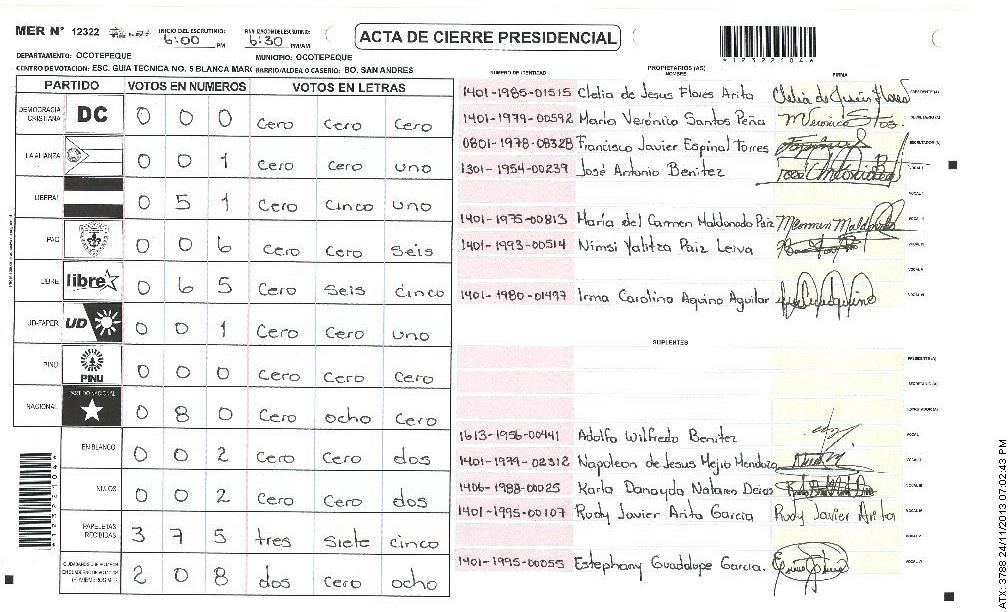 MER N° 12322 INICIO DEL ESCRUTINIO: 6:00 PM 6:30 PM/AM ACTA DE CIERRE PRESIDENCIAL
* 1 2 3 2 2 1 0 4 *
DEPARTAMENTO: OCOTEPEQUE MUNICIPIO: OCOTEPEQUE
CENTRO DE VOTACION: ESC. GUIA TECNICA NO. 5 BLANCA MAR BARRIO/ALDEA O CASERIO: BO. SAN ANDRES
PARTIDO VOTOS EN NUMEROS VOTOS EN LETRAS
DEMOCRACIA CRISTIANA DC 0 0 0 Cero Cero Cero
LA ALIANZA 0 0 1 Cero Cero uno
LIBERAL 0 5 1 Cero Cinco uno
PAC 0 0 6 Cero Cero Seis
LIBRE libre 0 6 5 Cero Seis cinco
UD-FAPER UD 0 0 1 Cero Cero uno
PINU PINU 0 0 0 Cero Cero Cero
NACIONAL PARTIDO NACIONAL 0 8 0 Cero ocho Cero
EN BLANCO 0 0 2 Cero Cero dos
NULOS 0 0 2 Cero Cero dos
PAPELETAS RECIBIDAS 3 7 5 tres siete cinco
2 0 8 dos cero ocho
NUMERO DE IDENTIDAD PROPIETARIOS (AS) NOMBRE FIRMA
1401-1985-01515 Clelia de Jesus Flores Arita Clelia de Jesús Flores PRESIDENTE (A)
1401-1979-00592 María Verónica Santos Peña SECRETARIO (A)
0801-1978-08328 Francisco Javier Espinal Torres ESCRUTADOR (A)
1301-1954-00239 José Antonio Benitez VOCAL I
VOCAL II
1401-1975-00813 María del Carmen Maldonado Paiz VOCAL III
1401-1993-00514 Nimsi Yalitza Paiz Leiva VOCAL IV
VOCAL V
1401-1980-01497 Irma Carolina Aquino Aguilar VOCAL VI
SUPLENTES
PRESIDENTE (A)
SECRETARIO (A)
ESCRUTADOR (A)
1613-1956-00441 Adolfo Wilfredo Benitez VOCAL I
1401-1979-02312 Napoleon de Jesus Mejia Mendoza VOCAL II
1406-1988-00025 Karla Danayda VOCAL III
1401-1995-00107 Rudy Javier Arita Garcia Rudy Javier Arita VOCAL IV
VOCAL V
1401-1995-00055 Estephany Guadalupe Garcia. VOCAL VI
ATX: 3788 24/11/2013 07:02:43 PM